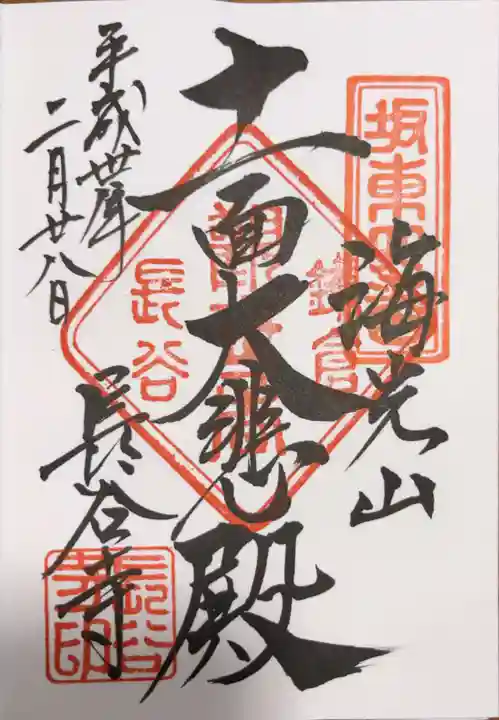 坂東
海光山
鎌倉
十一面大悲殿
長谷
平成丗年
二月廿八日
長谷寺
長谷寺印